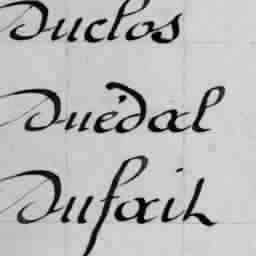 Duclos
Duédal
Dufait